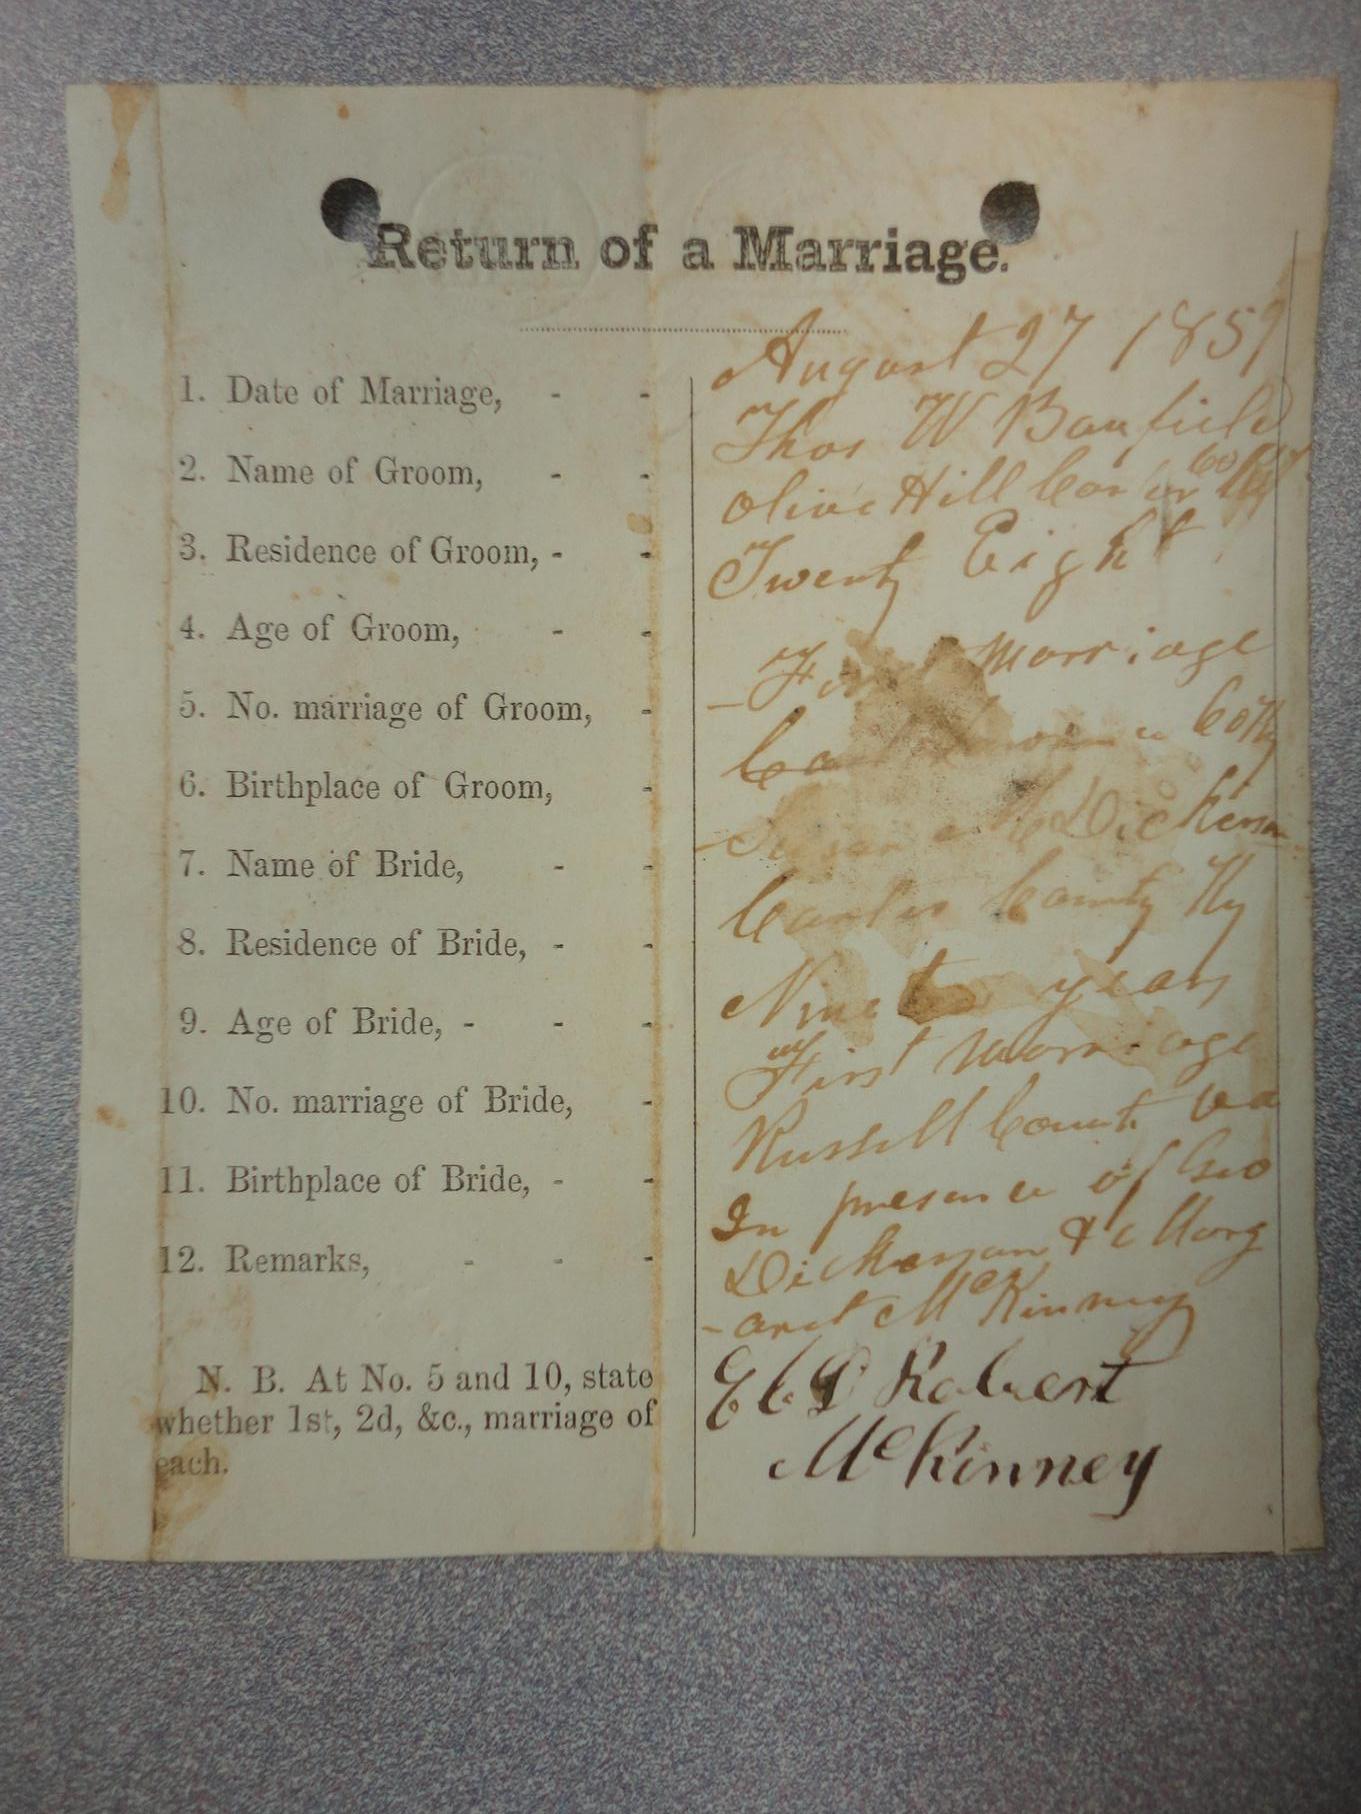 Return of a Marriage.
1. Date of Marriage, - - August 27 1859
2. Name of Groom, - - Thos W Banfield
3. Residence of Groom, - - Olive Hill Carter Co Ky
4. Age of Groom, - - Twenty Eight
5. No. marriage of Groom, - First Marriage
6. Birthplace of Groom, - Co Ky
7. Name of Bride, - - M Dickerson
8. Residence of Bride, - - Carter County Ky
9. Age of Bride, - - - years
10. No. marriage of Bride, - First Marriage
11. Birthplace of Bride, - - Russell County Va
12. Remarks, - - - In presence of Geo
Dickerson & Marg
-aret McKinney
N. B. At No. 5 and 10, state
whether 1st, 2d, &c., marriage of
each.
Robert
McKinney